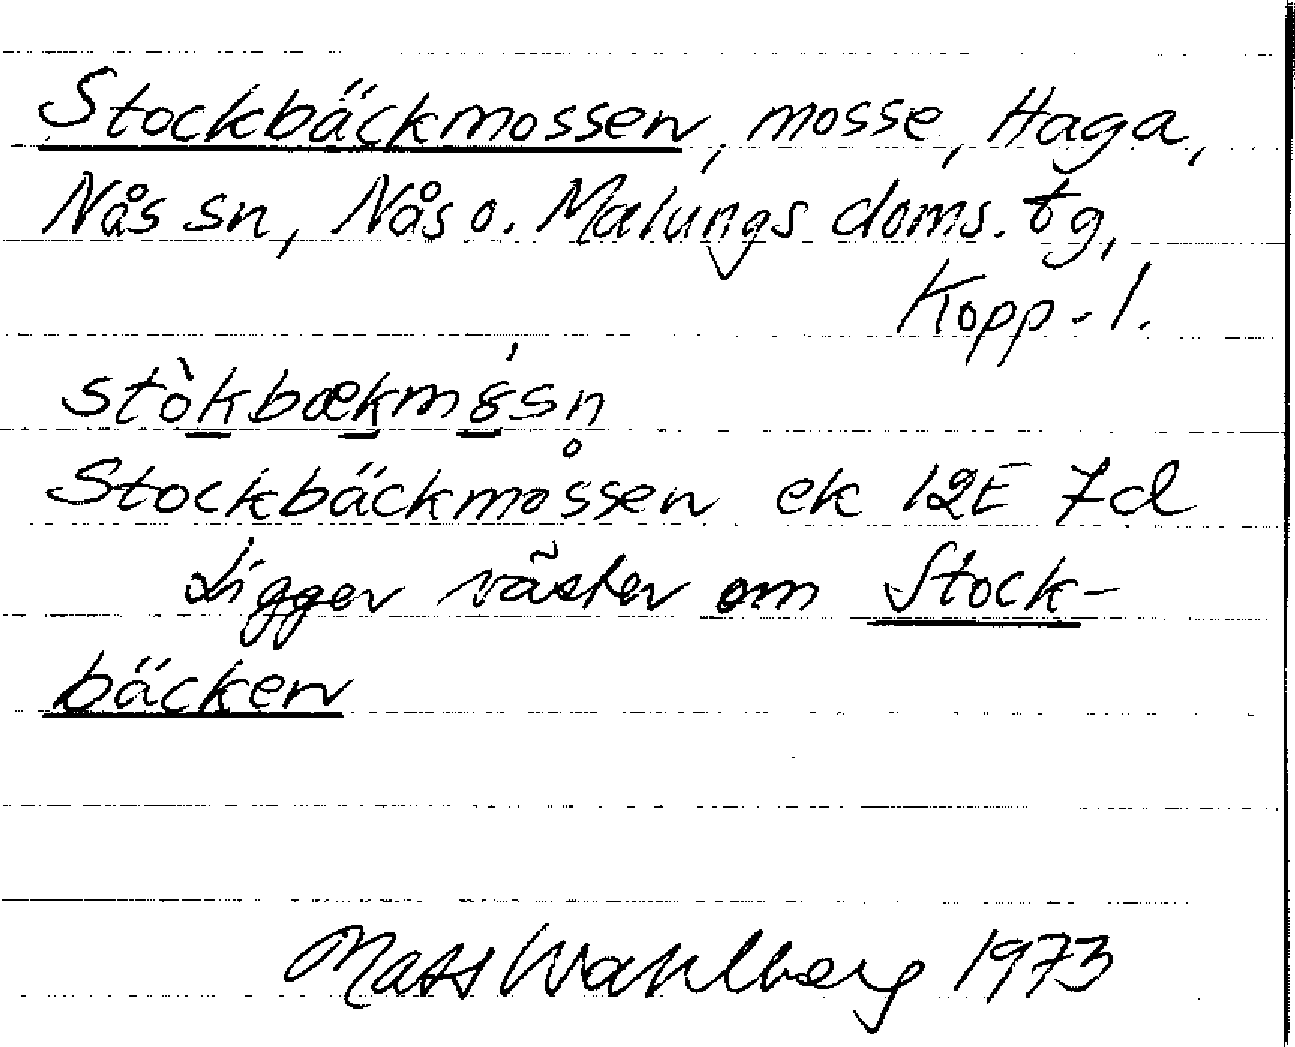 Stockbäckmossen, mosse, Haga,
Nås sn, Nås o. Malungs doms. tg,
Kopp-l.
stòkbækmó̤sn̥
Stockbäckmossen ek 12E 7d
Ligger väster om Stock-
bäcken
Mats Wahlberg 1973